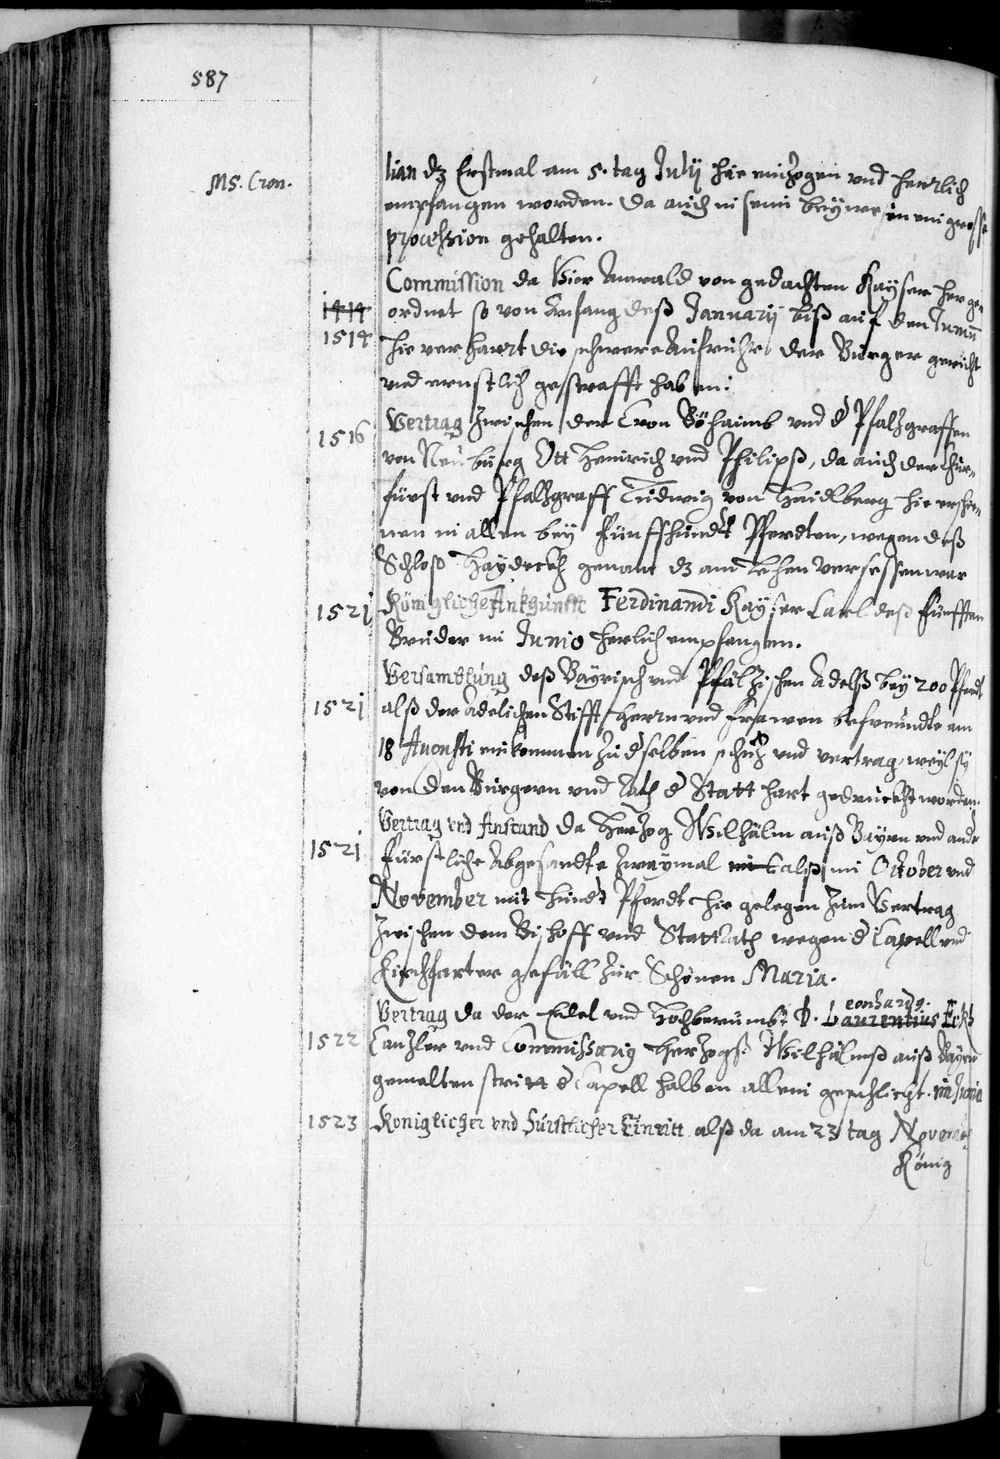 587
Ms. Cron.
lian dz Erstmal am 5. tag Julij hie einzogen und herrlich
empfangen worden. Da auch in seim beywesen ein grosse
procession gehalten.
Commission da Vier Anwald von gedachten Kayser her ge=
1414 ordnet so von Anfang deß Januarij biß auf den Junium
1514 hie verharrt die schwere Aufruhr der Burger gericht
und ernstlich gestrafft haben.
1516 Vertrag Zwischen der Cron Böhaimb und d Pfalzgraffen
von Neuburg Ott Heinrich und Philipß, da auch der Chur=
fürst und Pfalzgraff Ludwig von Haidlberg hie erschie=
nen in allen bey Fünffhundt Pferdten, wegen deß
Schloß Haydeckh genant dz am Lehen versessen war
1521 Königliche Ankhunfft Ferdinandi Kayser Carl deß Fünfften
Bruder im Junio herlich empfangen.
Versamblung deß Bayrisch und Pfälzischen Adelß bey 200 Pferdt
1521 alß der Adelichen Stifft herrn und frawen befreundte am
18 Augusti einkommen zu dselben schuz und vertrag, weyl sy
von den Burgern und Rath d Statt hart gedruckht worden.
Vertrag und Anstand da Herzog Wilhälm auß Bayrn und andr
1521 Fürstliche Abgesandte zwaymal alß im October und
November mit hundt Pferdt hie gelegen zum Vertrag
Zwischen dem Bischoff und Stattrath wegen d Capell und
Kirchfarter gefäll zur Schönen Maria.
eonhardg.
Vertrag da der Edel und Hochberümbt D. Laurentius Eckh
1522 Canzler und Commissarig Herzogß Wilhälmß auß Bayrn
gemelten stritt d Capell halben allein geschlicht. im Junio
1523 Königlicher und Fürstlicher Einritt alß da am 23 tag Novemb
König